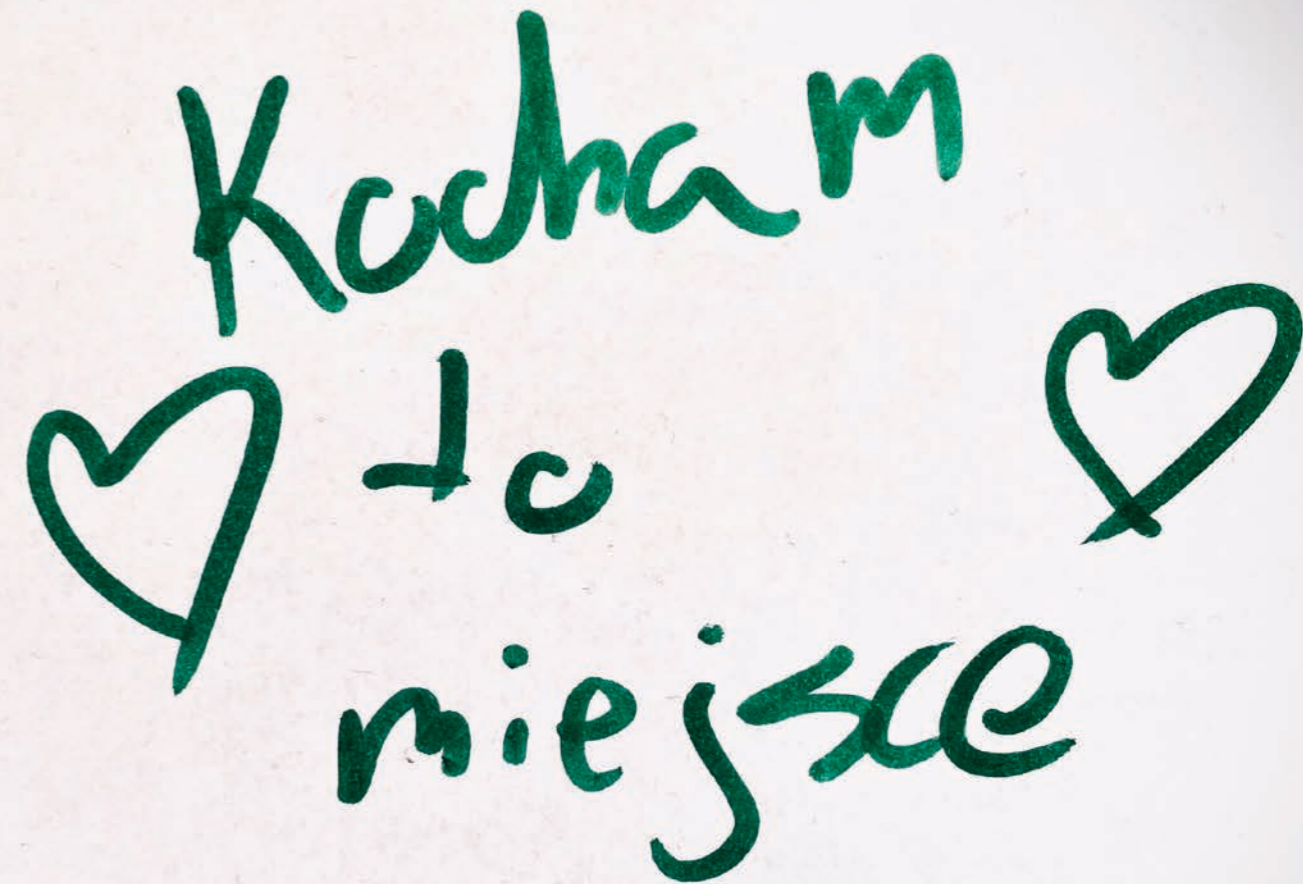 Kocham
to
miejsce